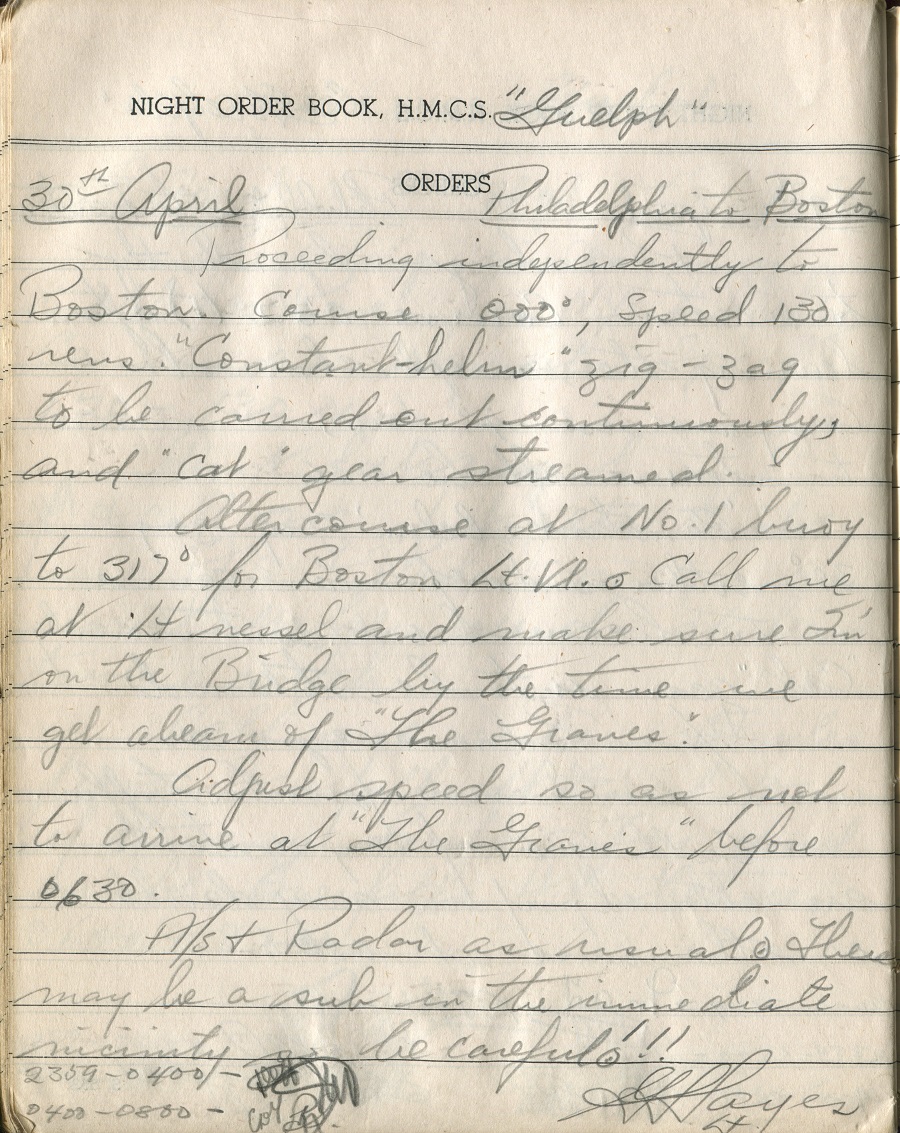 NIGHT ORDER BOOK, H.M.C.S. "Guelph"
ORDERS
30th April Philadelphia to Boston
Proceeding independently to
Boston. Course 000°, Speed 130
revs. "Constant-helm" zig-zag
to be carried out continuously,
and "Cat" gear streamed.
Alter course at No. 1 buoy
to 317° for Boston Lt. Vl. Call me
at Lt vessel and make sure I'm
on the Bridge by the time we
get abeam of "The Graves".
Adjust speed so as not
to arrive at "The Graves" before
0630.
A/s + Radar as usual. There
may be a sub in the immediate
vicinity so be careful!!!
2359-0400 -
0400-0800 -
Hayes
Lt.